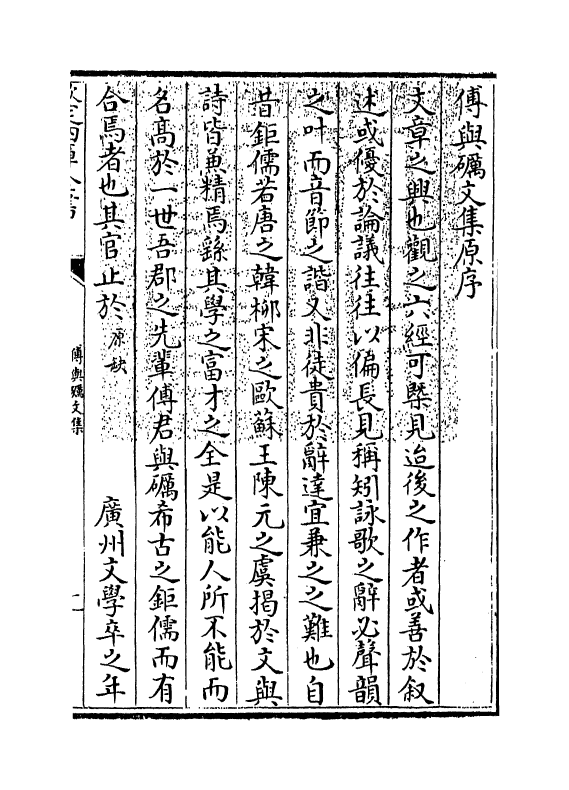 傅與礪文集原序
文章之興也觀之六經可槩見迨後之作者或善於叙
述或優於論議往往以偏長見稱矧詠歌之辭必聲韻
之叶而音節之諧又非徒貴於辭達宜兼之之難也自
昔鉅儒若唐之韓柳宋之歐蘇王陳元之虞揭於文與
詩皆兼精焉繇其學之富才之全是以能人所不能而
名髙於一世吾郡之先輩傅君與礪希古之鉅儒而有
合焉者也其官止於原缺 廣州文學卒之年
傅與礪文集